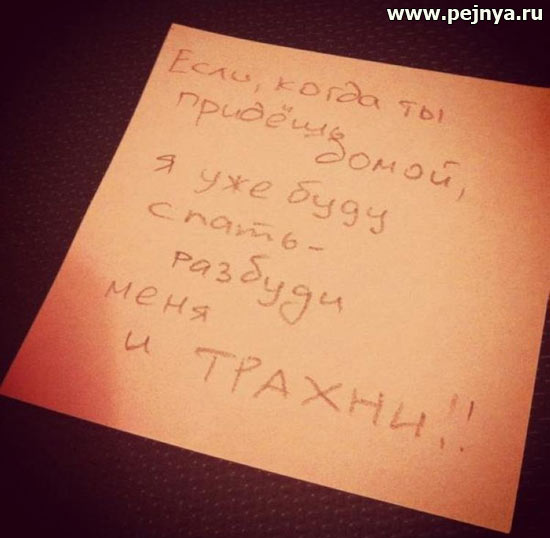 www.pejnya.ru
Если, когда ты
придёшь
домой,
я уже буду
спать-
разбуди
меня
и ТРАХНИ!!